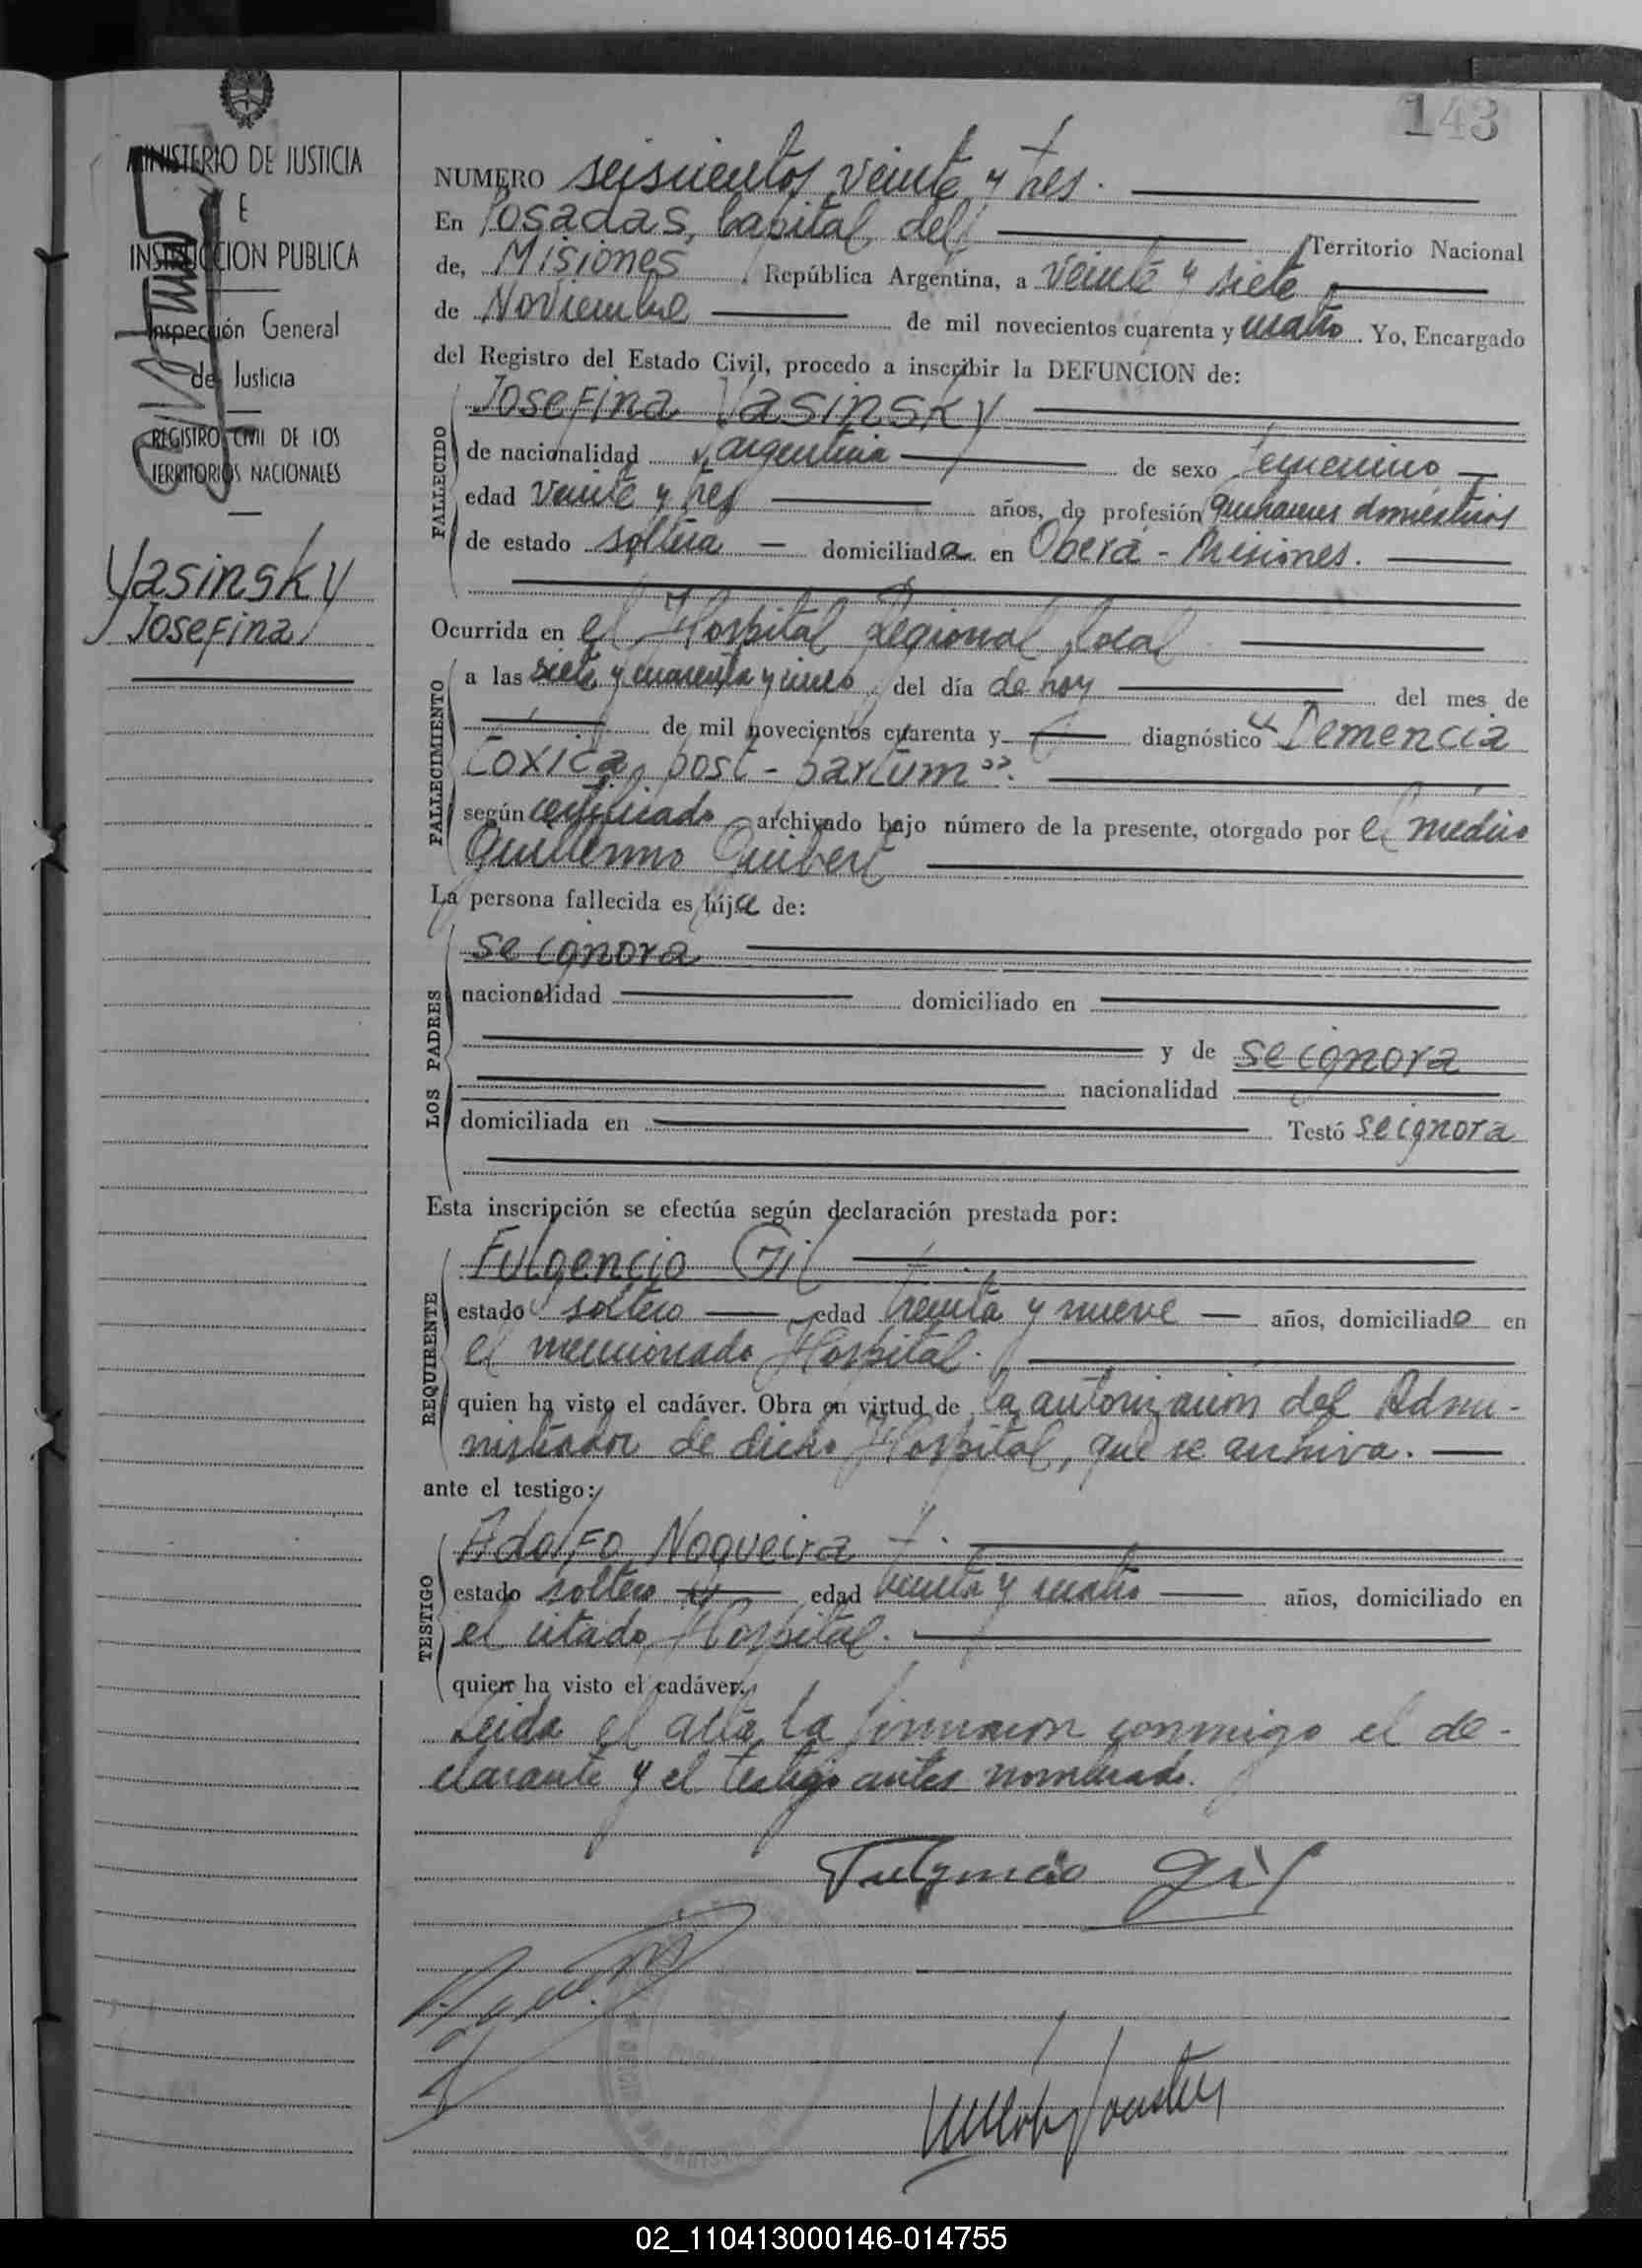 143
MINISTERIO DE JUSTICIA
E
INSTRUCCION PUBLICA
Inspección General
de Justicia
REGISTRO CIVIL DE LOS
TERRITORIOS NACIONALES
Yasinsky
Josefina
NUMERO seiscientos veinte y tres.
En Posadas, Capital del Territorio Nacional
de, Misiones, República Argentina, a veinte y siete
de Noviembre de mil novecientos cuarenta y cuatro. Yo, Encargado
del Registro del Estado Civil, procedo a inscribir la DEFUNCION de:
FALLECIDO
Josefina Yasinsky
de nacionalidad argentina de sexo femenino
edad veinte y tres años, de profesión quehaceres domésticos
de estado soltera domiciliada en Oberá - Misiones.
Ocurrida en el Hospital Regional local
FALLECIMIENTO
a las siete y cuarenta y cinco del día de hoy del mes de
de mil novecientos cuarenta y diagnóstico "Demencia
toxica, post-partum".
según certificado archivado bajo número de la presente, otorgado por el médico
Guillermo
La persona fallecida es hija de:
LOS PADRES
se ignora
nacionalidad domiciliado en
y de se ignora
nacionalidad
domiciliada en Testó se ignora
Esta inscripción se efectúa según declaración prestada por:
REQUIRENTE
Fulgencio Gil
estado soltero edad treinta y nueve años, domiciliado en
el mencionado Hospital.
quien ha visto el cadáver. Obra en virtud de la autorización del Admi-
nistrador de dicho Hospital, que se archiva.
ante el testigo:
TESTIGO
Adolfo Nogueira
estado soltero edad treinta y cuatro años, domiciliado en
el citado Hospital.
quien ha visto el cadáver.
Leida el acta la firmaron conmigo el de-
clarante y el testigo antes nombrado.
Fulgencio Gil
02_110413000146-014755